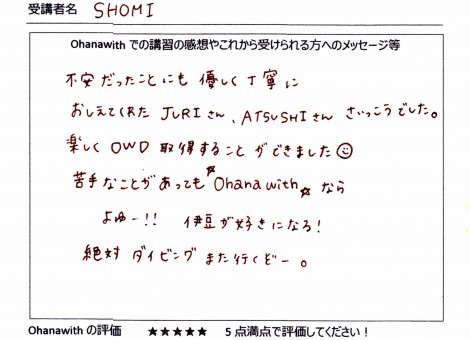 受講者名 SHOMI
Ohanawith での講習の感想やこれから受けられる方へのメッセージ等
不安だったことにも 優しく丁寧に
おしえてくれた JURIさん、ATSUSHIさん さいっこうでした。
楽しく OWD 取得することができました☺
苦手なことがあっても ☆Ohana with☆ なら
よゆー!! 伊豆が好きになる!
絶対 ダイビング また行くぞー。
Ohanawith の評価 ★★★★★ 5 点満点で評価してください!